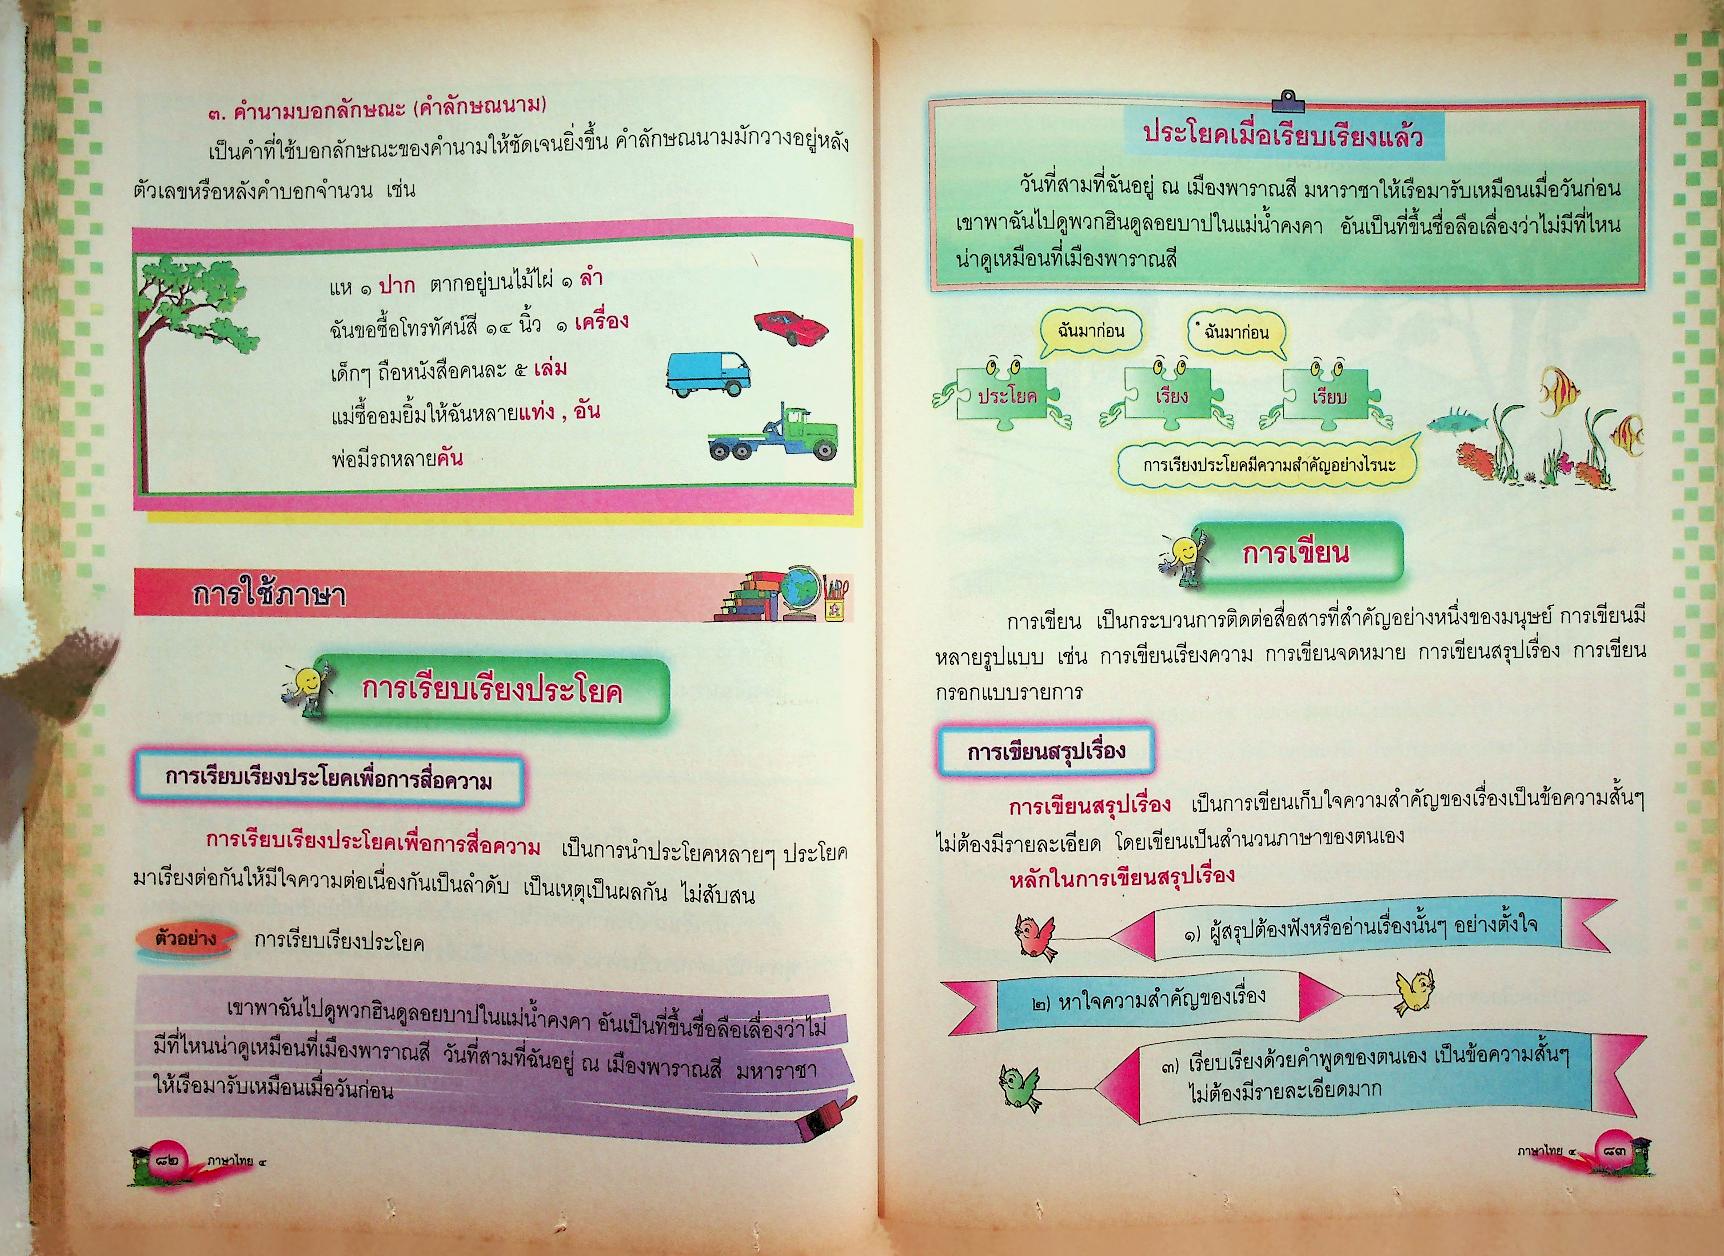 ๓. คำนามบอกลักษณะ (คำลักษณนาม)
เป็นคำที่ใช้บอกลักษณะของคำนามให้ชัดเจนยิ่งขึ้น คำลักษณนามมักวางอยู่หลัง
ตัวเลขหรือหลังคำบอกจำนวน เช่น
แห ๑ ปาก ตากอยู่บนไม้ไผ่ ๑ ลำ
ฉันขอซื้อโทรทัศน์สี ๑๔ นิ้ว ๑ เครื่อง
เด็กๆ ถือหนังสือคนละ ๕ เล่ม
แม่ซื้ออมยิ้มให้ฉันหลายแท่ง , อัน
พ่อมีรถหลายคัน
การใช้ภาษา
การเรียบเรียงประโยค
การเรียบเรียงประโยคเพื่อการสื่อความ
การเรียบเรียงประโยคเพื่อการสื่อความ เป็นการนำประโยคหลายๆ ประโยค
มาเรียงต่อกันให้มีใจความต่อเนื่องกันเป็นลำดับ เป็นเหตุเป็นผลกัน ไม่สับสน
ตัวอย่าง การเรียบเรียงประโยค
เขาพาฉันไปดูพวกฮินดูลอยบาปในแม่น้ำคงคา อันเป็นที่ขึ้นชื่อลือเลื่องว่าไม่
มีที่ไหนน่าดูเหมือนที่เมืองพาราณสี วันที่สามที่ฉันอยู่ ณ เมืองพาราณสี มหาราชา
ให้เรือมารับเหมือนเมื่อวันก่อน
๘๒ ภาษาไทย ๔
ประโยคเมื่อเรียบเรียงแล้ว
วันที่สามที่ฉันอยู่ ณ เมืองพาราณสี มหาราชาให้เรือมารับเหมือนเมื่อวันก่อน
เขาพาฉันไปดูพวกฮินดูลอยบาปในแม่น้ำคงคา อันเป็นที่ขึ้นชื่อลือเลื่องว่าไม่มีที่ไหน
น่าดูเหมือนที่เมืองพาราณสี
ฉันมาก่อน ฉันมาก่อน
ประโยค เรียง เรียบ
การเรียงประโยคมีความสำคัญอย่างไรนะ
การเขียน
การเขียน เป็นกระบวนการติดต่อสื่อสารที่สำคัญอย่างหนึ่งของมนุษย์ การเขียนมี
หลายรูปแบบ เช่น การเขียนเรียงความ การเขียนจดหมาย การเขียนสรุปเรื่อง การเขียน
กรอกแบบรายการ
การเขียนสรุปเรื่อง
การเขียนสรุปเรื่อง เป็นการเขียนเก็บใจความสำคัญของเรื่องเป็นข้อความสั้นๆ
ไม่ต้องมีรายละเอียด โดยเขียนเป็นสำนวนภาษาของตนเอง
หลักในการเขียนสรุปเรื่อง
๑) ผู้สรุปต้องฟังหรืออ่านเรื่องนั้นๆ อย่างตั้งใจ
๒) หาใจความสำคัญของเรื่อง
๓) เรียบเรียงด้วยคำพูดของตนเอง เป็นข้อความสั้นๆ
ไม่ต้องมีรายละเอียดมาก
ภาษาไทย ๔ ๘๓